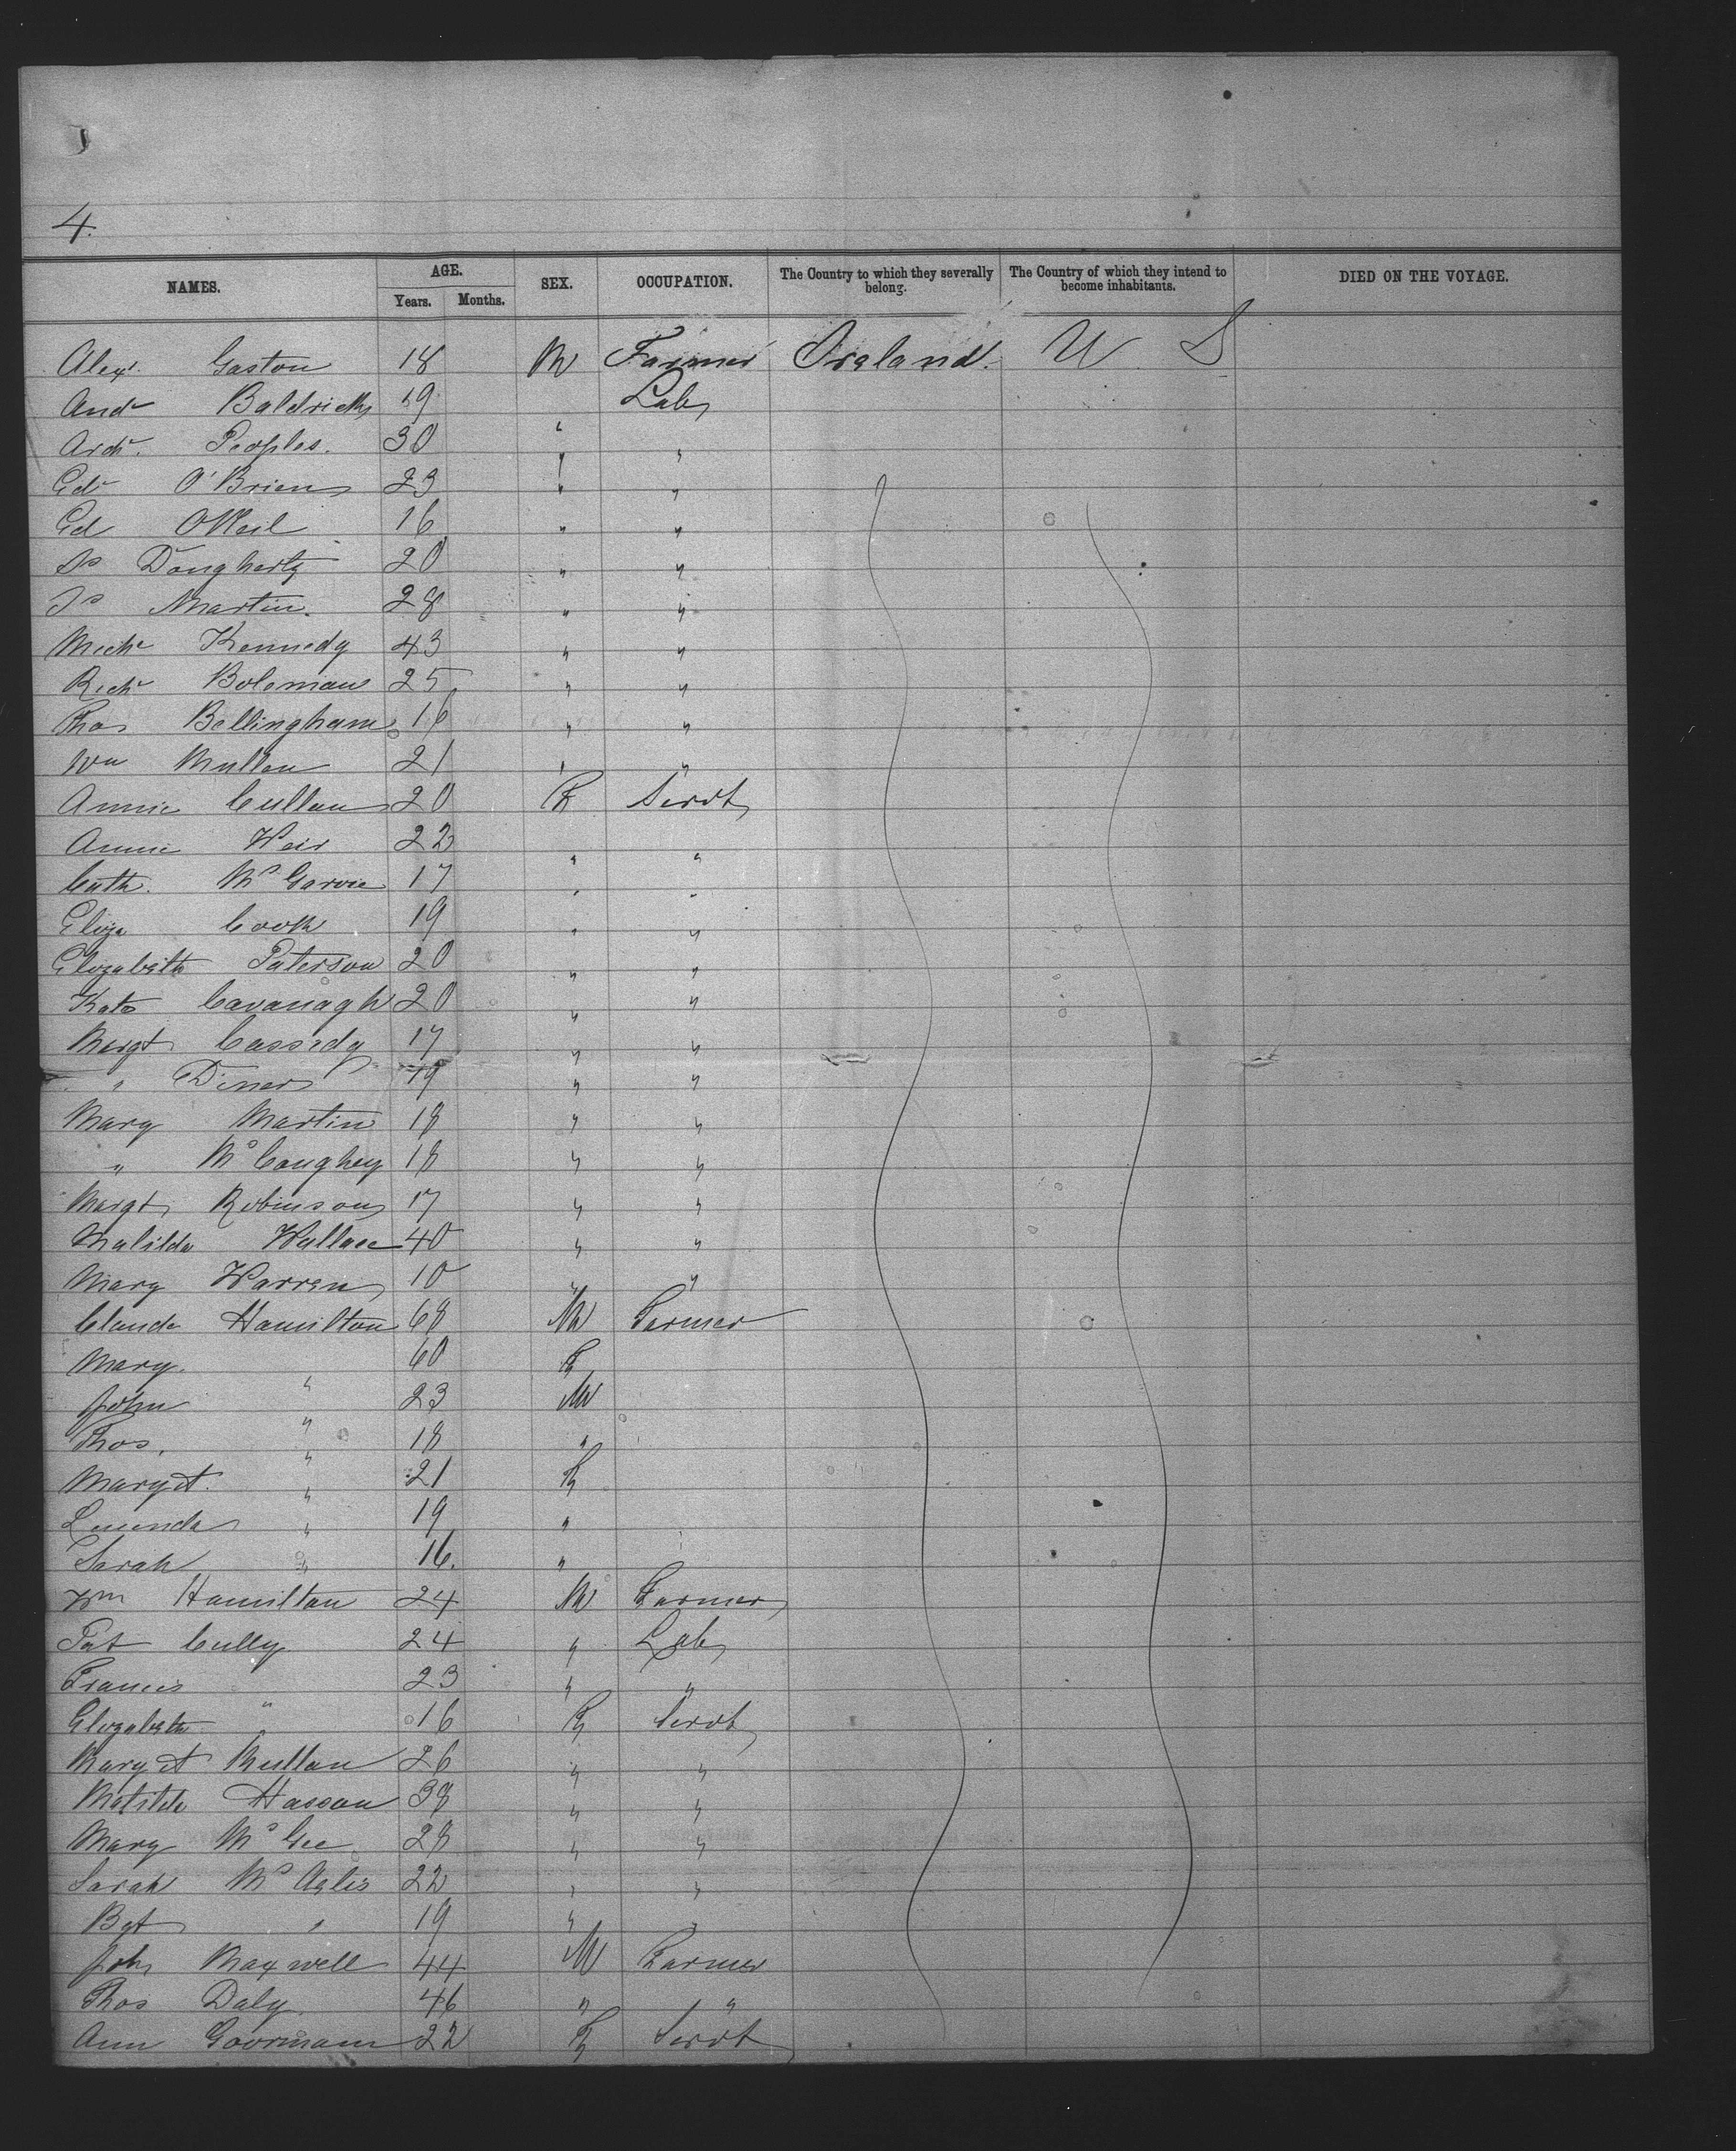 4.
NAMES. AGE. Years. Months. SEX. OCCUPATION. The Country to which they severally belong. The Country of which they intend to become inhabitants. DIED ON THE VOYAGE.
Alexr. Gaston 18 M Farmer Ireland. U S
Andr Baldrick 19 Lab
Archd. Peoples. 30 " "
Edd O'Brien 23 " "
Ed O'Neil 16 " "
Js Dougherty 20 " "
Js Martin. 28 " "
Michl Kennedy 43 " "
Richd Boleman 25 " "
Thos Bellingham 16 " "
Wm Mullen 21 " "
Annie Cullen 20 F Servt
Annie Weir 22 " "
Cath. McGarvie 17 " "
Eliza Cook 19 " "
Elizabeth Paterson 20 " "
Kate Cavanagh 20 " "
Margt Cassedy 17 " "
" Diner 19 " "
Mary Martin 18 " "
" McCaughey 18 " "
Margt Robinson 17 " "
Matilda Wallace 40 " "
Mary Warren 10 " "
Claude Hamilton 68 M Farmer
Mary. " 60 F
John " 23 M
Thos. " 18 "
Margt. " 21 F
" 19 "
Sarah " 16. "
Wm Hamilton 24 M Farmer
Pat Cully 24 " Lab
Francis " 23 " "
Elizabeth " 16 F Servt
Margt Mullan 26 " "
Matilda Hasson 38 " "
Mary McGee 28 " "
Sarah 22 " "
Bgt " 19 " "
John Maxwell 44 M Farmer
Thos Daly. 46 " "
Ann 22 F Servt